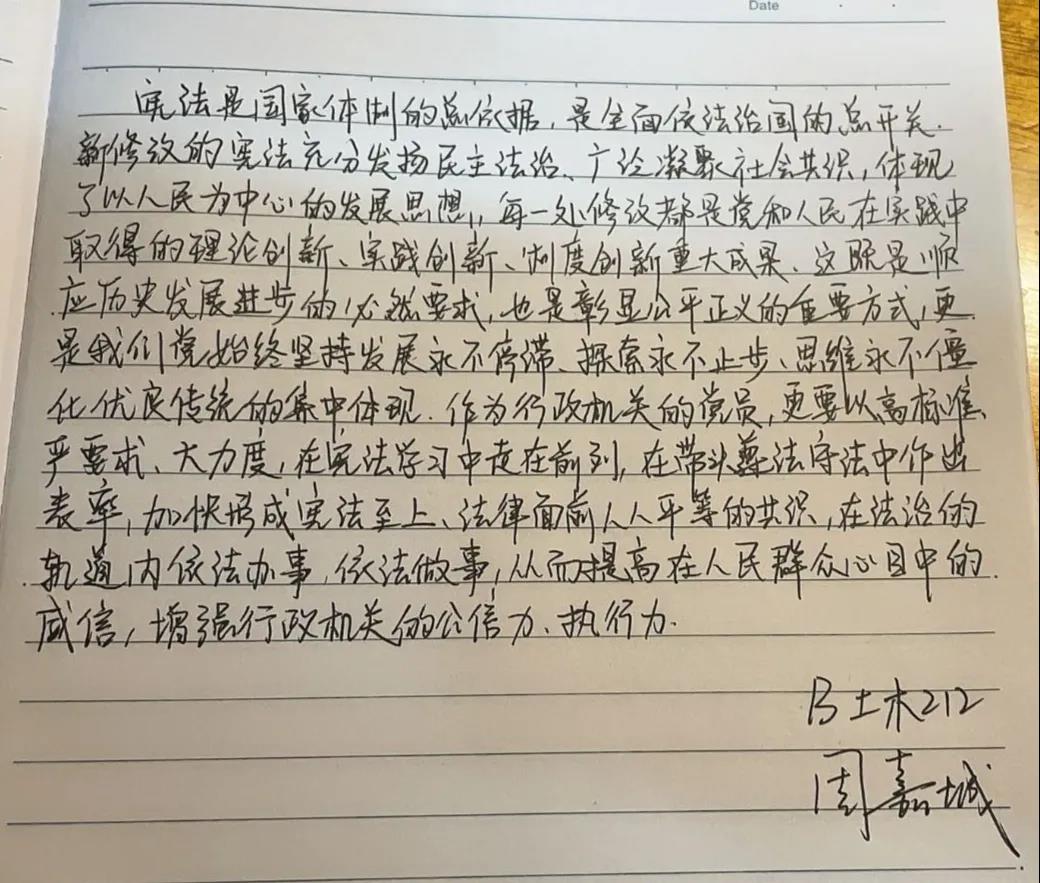 Date
宪法是国家体制的总依据，是全面依法治国的总开关.
新修改的宪法充分发扬民主法治、广泛凝聚社会共识，体现
了以人民为中心的发展思想，每一处修改都是党和人民在实践中
取得的理论创新、实践创新、制度创新重大成果、这既是顺
应历史发展进步的必然要求，也是彰显公平正义的重要方式，更
是我们党始终坚持发展永不停滞、探索永不止步、思维永不僵
化优良传统的集中体现.作为行政机关的党员，更要以高标准、
严要求、大力度，在宪法学习中走在前列，在带头尊法守法中作出
表率，加快形成宪法至上、法律面前人人平等的共识，在法治的
轨道内依法办事，依法做事，从而提高在人民群众心目中的
威信，增强行政机关的公信力、执行力.
B土木212
周嘉城